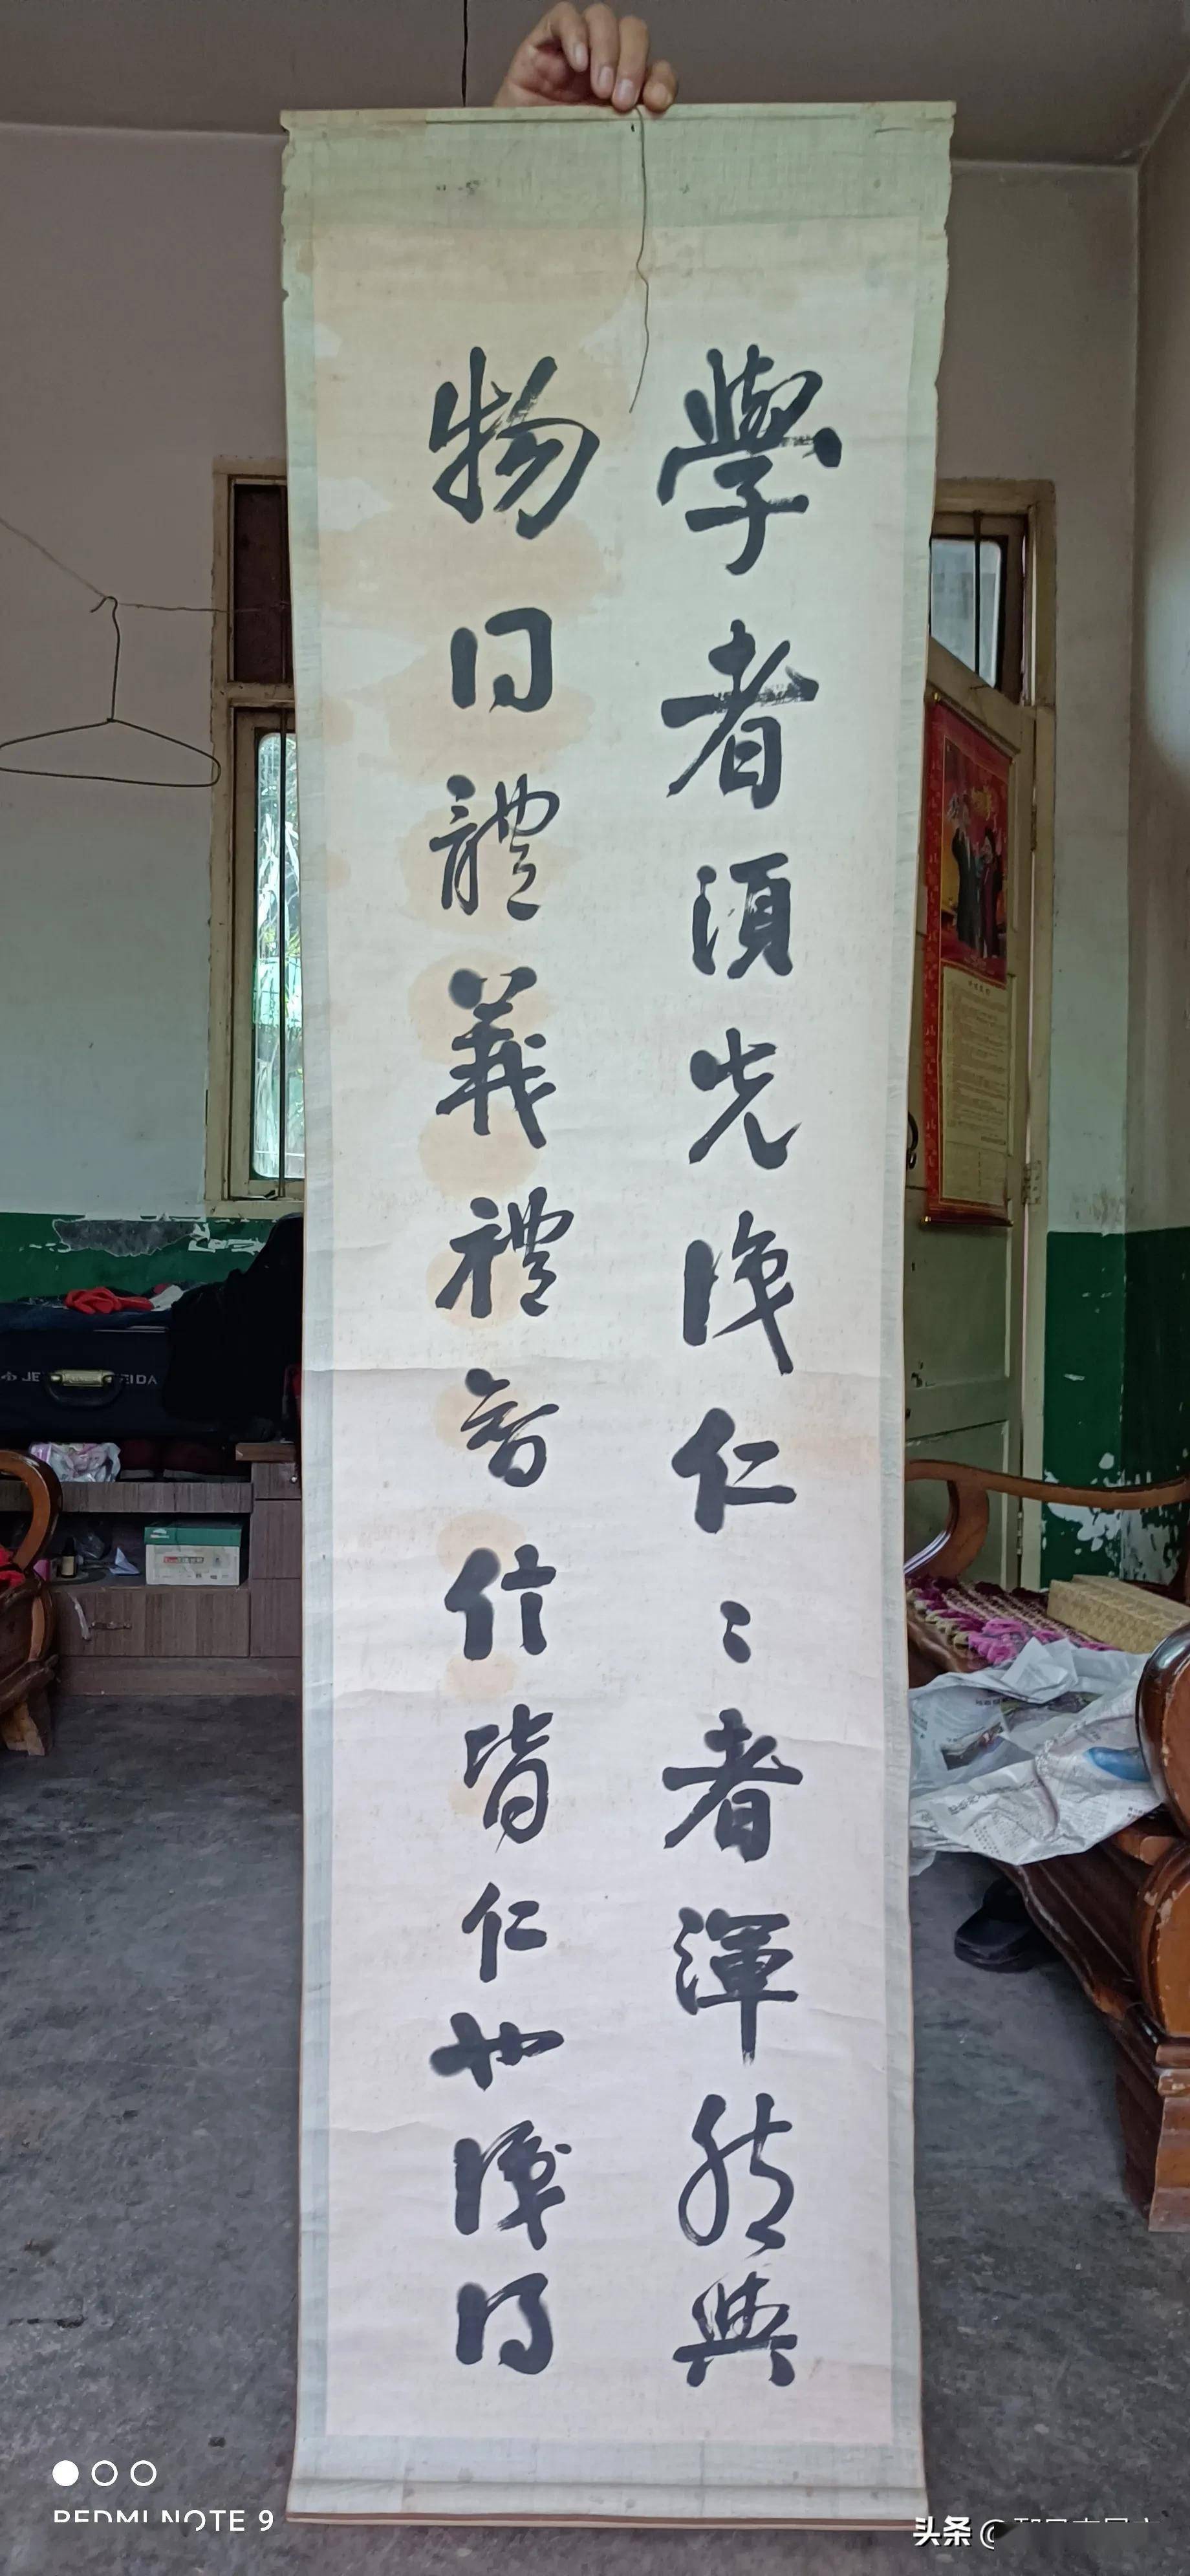 學者須先識仁〻者渾然與
物同體義禮智信皆仁也識得
REDMI NOTE 9
头条